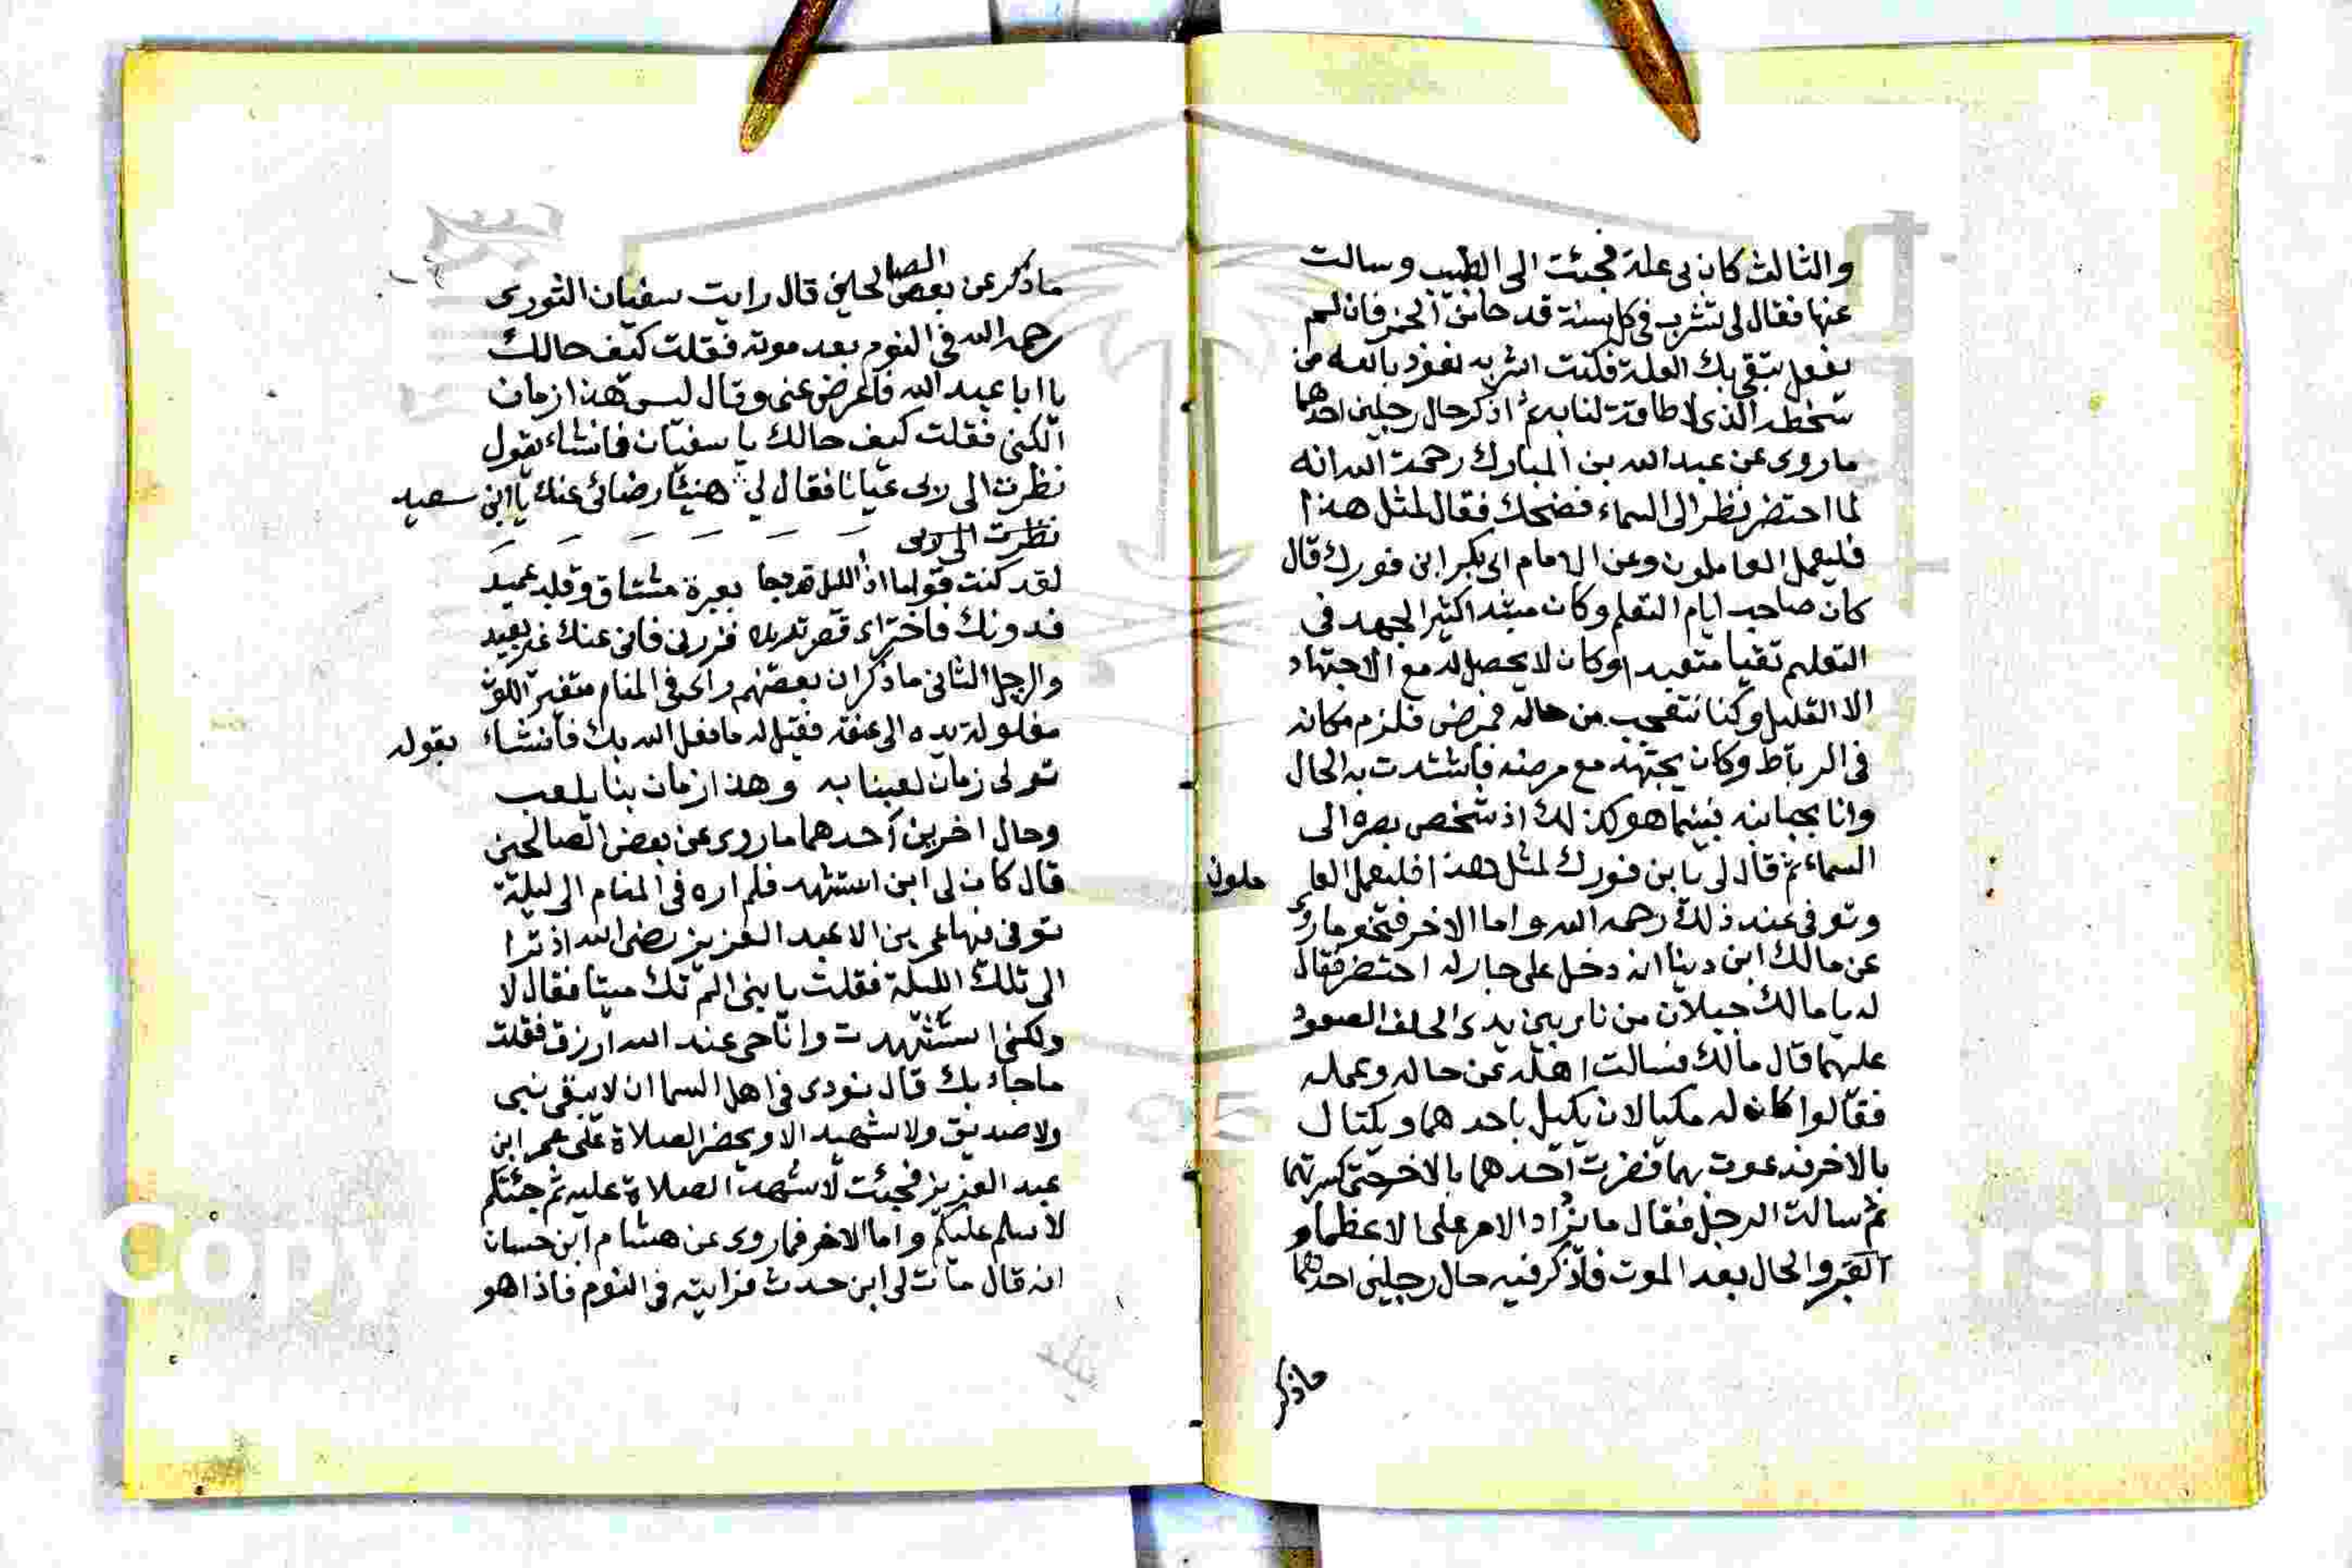 والثالث كان بي علة فجئت الى الطبيب وسالت
عنها فقال لي تشرب في كل سنة قدحا من الخمر فان لم
يفعل تبقى بك العلة فكنت اشربه نعوذ بالله من
سخطه الذي لا طاقة لنا به ثم اذكر حال رجلين احدهما
ما روى عن عبد الله بن المبارك رحمة الله انه
لما احتضر نظر الى السماء فضحك فقال لمثل هذا
فليعمل العاملون وعن الامام ابى بكر ابن فورك قال
كان صاحب ايام التعلم وكان مبتدا كثير الجهد في
التعلم تقيا متعبدا وكان لا يحصل له مع الاجتهاد
الا القليل وكنا نتعجب من حاله فمرض فلزم مكانه
في الرباط وكان يجتهد مع مرضه فاشتدت به الحال
وانا بجانبه فبينما هو كذلك اذ شخص بصره الى
السماء ثم قال لي يا بن فورك لمثل هذا فليعمل العا ملون
وتوفى عند ذلك رحمه الله واما الاخر فنحو ما روى
عن مالك ابن دينا انه دخل على جار له احتضر فقال
له يا مالك جبلان من نار بين يدى الصعود
عليهما قال مالك فسالت اهله عن حاله وعمله
فقالوا كان له مكيالان يكيل باحدهما ويكتال
بالاخر فدعوت بهما فضربت احدهما بالاخر حتى كسرتهما
ثم سالت الرجل فقال ما يزاد الامر على الا عظما و
القبر والحال بعد الموت فاذكر فيه حال رجلين احدهما
ماذكر
ما ذكر عن بعض الصالحين قال رايت سفيان الثورى
رحمه الله في النوم بعد موته فقلت كيف حالك
يا ابا عبد الله فاعرض عنى وقال ليس هذا زمان
الكنى فقلت كيف حالك يا سفيان فانشاء يقول
نظرت الى ربى عيانا فقال لي هنيئا رضائى عنك يا ابن سعيد
نظرت الى ربى
لقد كنت قواما اذا الليل قد دجا بعبرة مشتاق وقلب عميد
فدونك فاختر اى قصر تريده فزرنى فانى عنك غير بعيد
والرجل الثانى ما ذكر ان بعضهم راى في المنام متغير اللون
مغلولة يده الى عنقه فقيل له ما فعل الله بك فانشاء يقوله
تولى زمان لعبنا به وهذا زمان بنا يلعب
وحال اخرين احدهما ما روى عن بعض الصالحين
قال كان لي ابن استشهد فلم اره في المنام الى ليلة
توفى فيها عمر بن الا عبد العزيز رضى الله اذ ترا
الى تلك الليلة فقلت يا بنى الم تك ميتا فقال لا
ولكنى استشهدت وانا حى عند الله ارزق فقلت
ما جاء بك قال نودى في اهل السما ان لا يبقى نبى
ولا صديق ولا شهيد الا ويحضر الصلاة على عمر ابن
عبد العزيز فجئت لاشهد الصلاة عليه ثم جئتكم
لاسلم عليكم واما الاخر فما روى عن هشام ابن حسان
انه قال مات لي ابن حدث فرايته في النوم فاذا هو